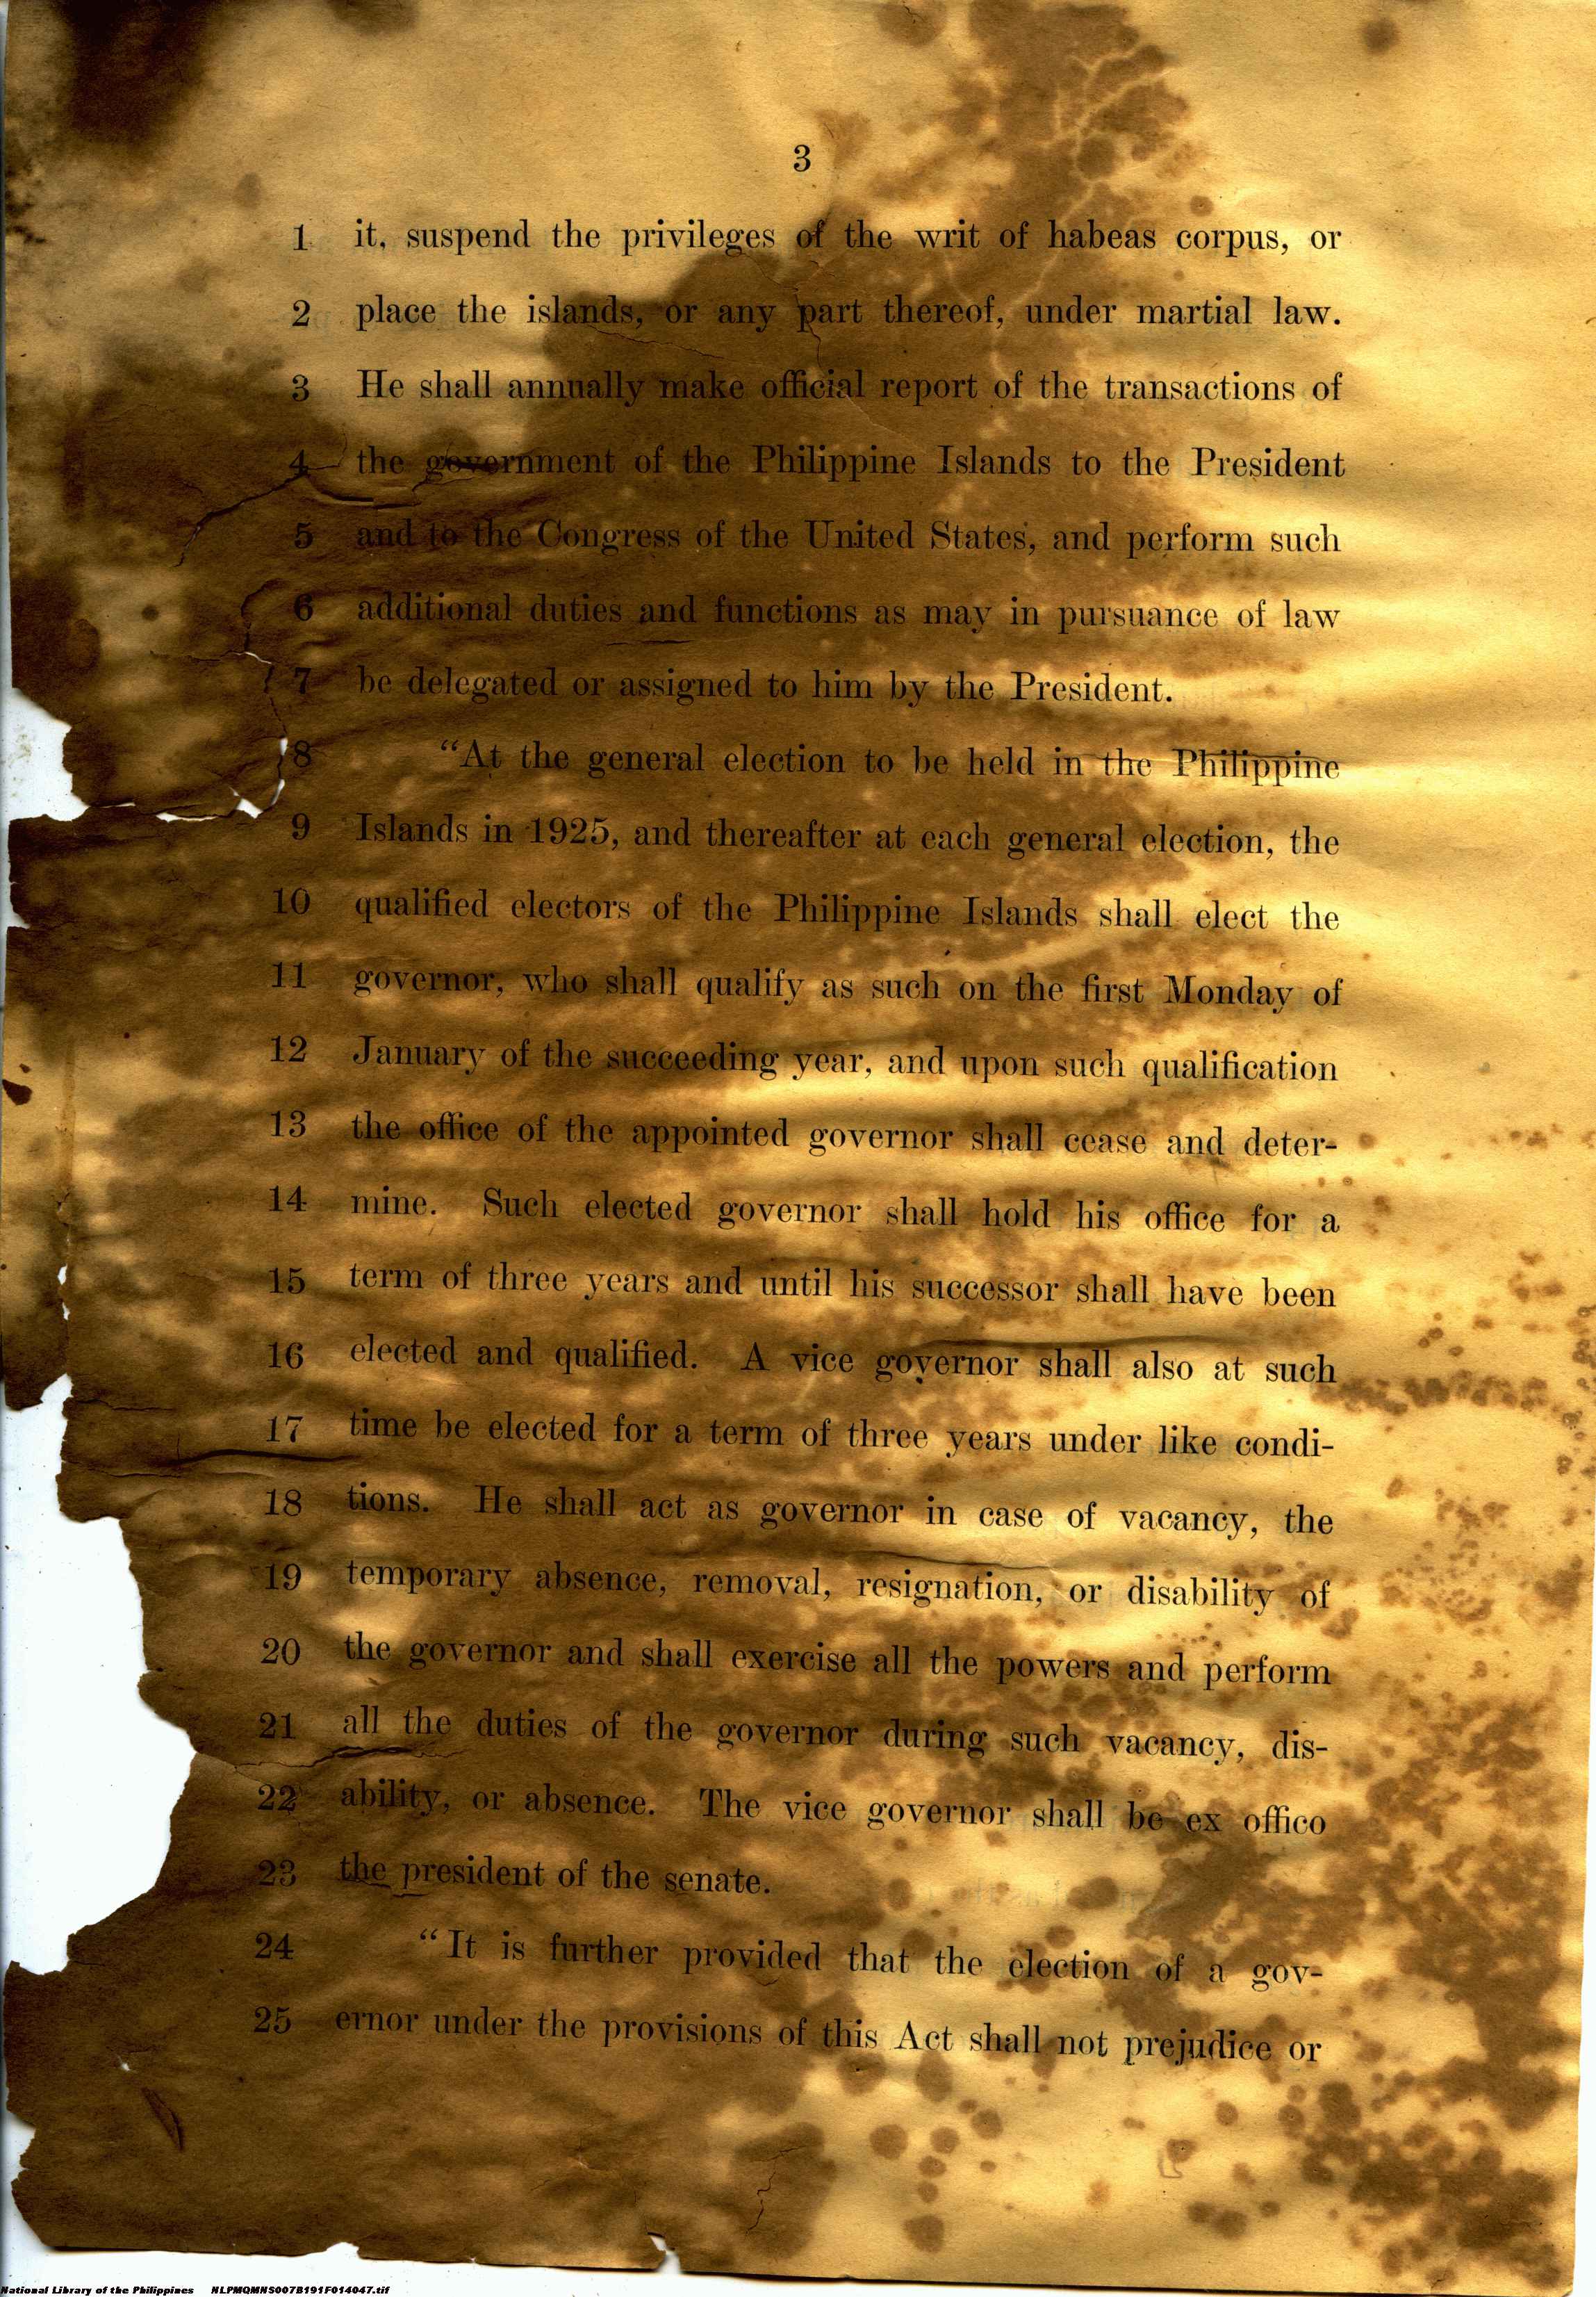 3
1 it, suspend the privileges of the writ of habeas corpus, or
2 place the islands, or any part thereof, under martial law.
3 He shall annually make official report of the transactions of
4 the government of the Philippine Islands to the President
5 and to the Congress of the United States, and perform such
6 additional duties and functions as may in pursuance of law
7 be delegated or assigned to him by the President.
8 “At the general election to be held in the Philippine
9 Islands in 1925, and thereafter at each general election, the
10 qualified electors of the Philippine Islands shall elect the
11 governor, who shall qualify as such on the first Monday of
12 January of the succeeding year, and upon such qualification
13 the office of the appointed governor shall cease and deter-
14 mine. Such elected governor shall hold his office for a
15 term of three years and until his successor shall have been
16 elected and qualified. A vice governor shall also at such
17 time be elected for a term of three years under like condi-
18 tions. He shall act as governor in case of vacancy, the
19 temporary absence, removal, resignation, or disability of
20 the governor and shall exercise all the powers and perform
21 all the duties of the governor during such vacancy, dis-
22 ability, or absence. The vice governor shall be ex offico
23 the president of the senate.
24 “It is further provided that the election of a gov-
25 ernor under the provisions of this Act shall not prejudice or
National Library of the Philippines NLPMQMNS007B191F014047.tif